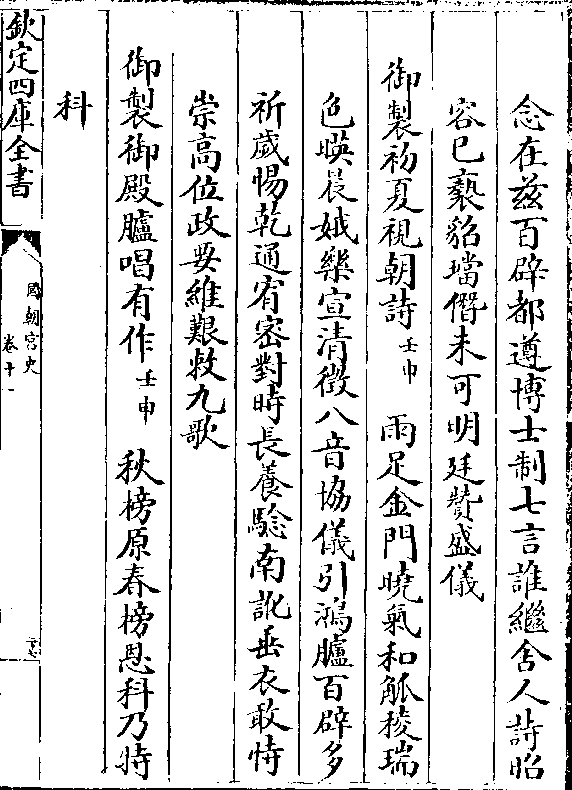 念在兹百辟都遵博士制七言誰繼舍人詩昭
容已褻貂璫僭未可明廷贊盛儀
御製初夏視朝詩壬申 雨足金門曉氣和觚稜瑞
色暎晨娥樂宣清徵八音協儀引鴻臚百辟多
祈嵗惕乾通宥密對時長養驗南訛垂衣敢恃
崇高位政要維艱敕九歌
御製御殿臚唱有作壬申 秋榜原春榜恩科乃特
科
欽定四庫全書
國朝宫史
卷十一